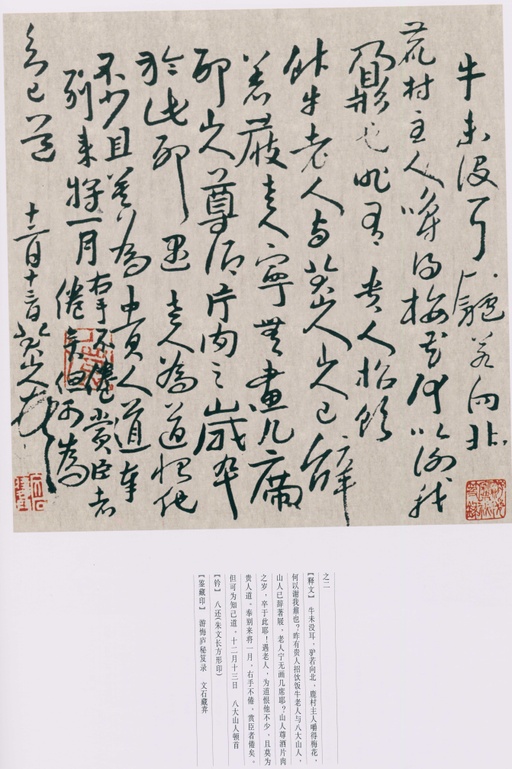 牛未没耳驢若向北
村主人嚼得梅花何以謝我
也昨有貴人招飲
飰牛老人与八大山人山人已辭
著屐老人寧無畫几席
耶山人尊酒片肉之歲卒
於此耶遇老人為道恨他
不少且莫為貴人道奉
別来將一月右手不倦賞臣者
倦矣但可為
知己道 十二月十三日八大山人頓首
之二
【释文】 牛未没耳,驴若向北,鹿村主人嚼得梅花,
何以谢我雕也?昨有贵人招饮饭牛老人与八大山人,
山人已辞著屐,老人宁无画几席耶?山人尊酒片肉
之岁,卒于此耶!遇老人,为道恨他不少,且莫为
贵人道。奉别来将一月,右手不倦,赏臣者倦矣。
但可为知己道。十二月十三日 八大山人顿首
【钤】 八还(朱文长方形印)
【鉴藏印】 游悔庐秘笈录 文石藏弆